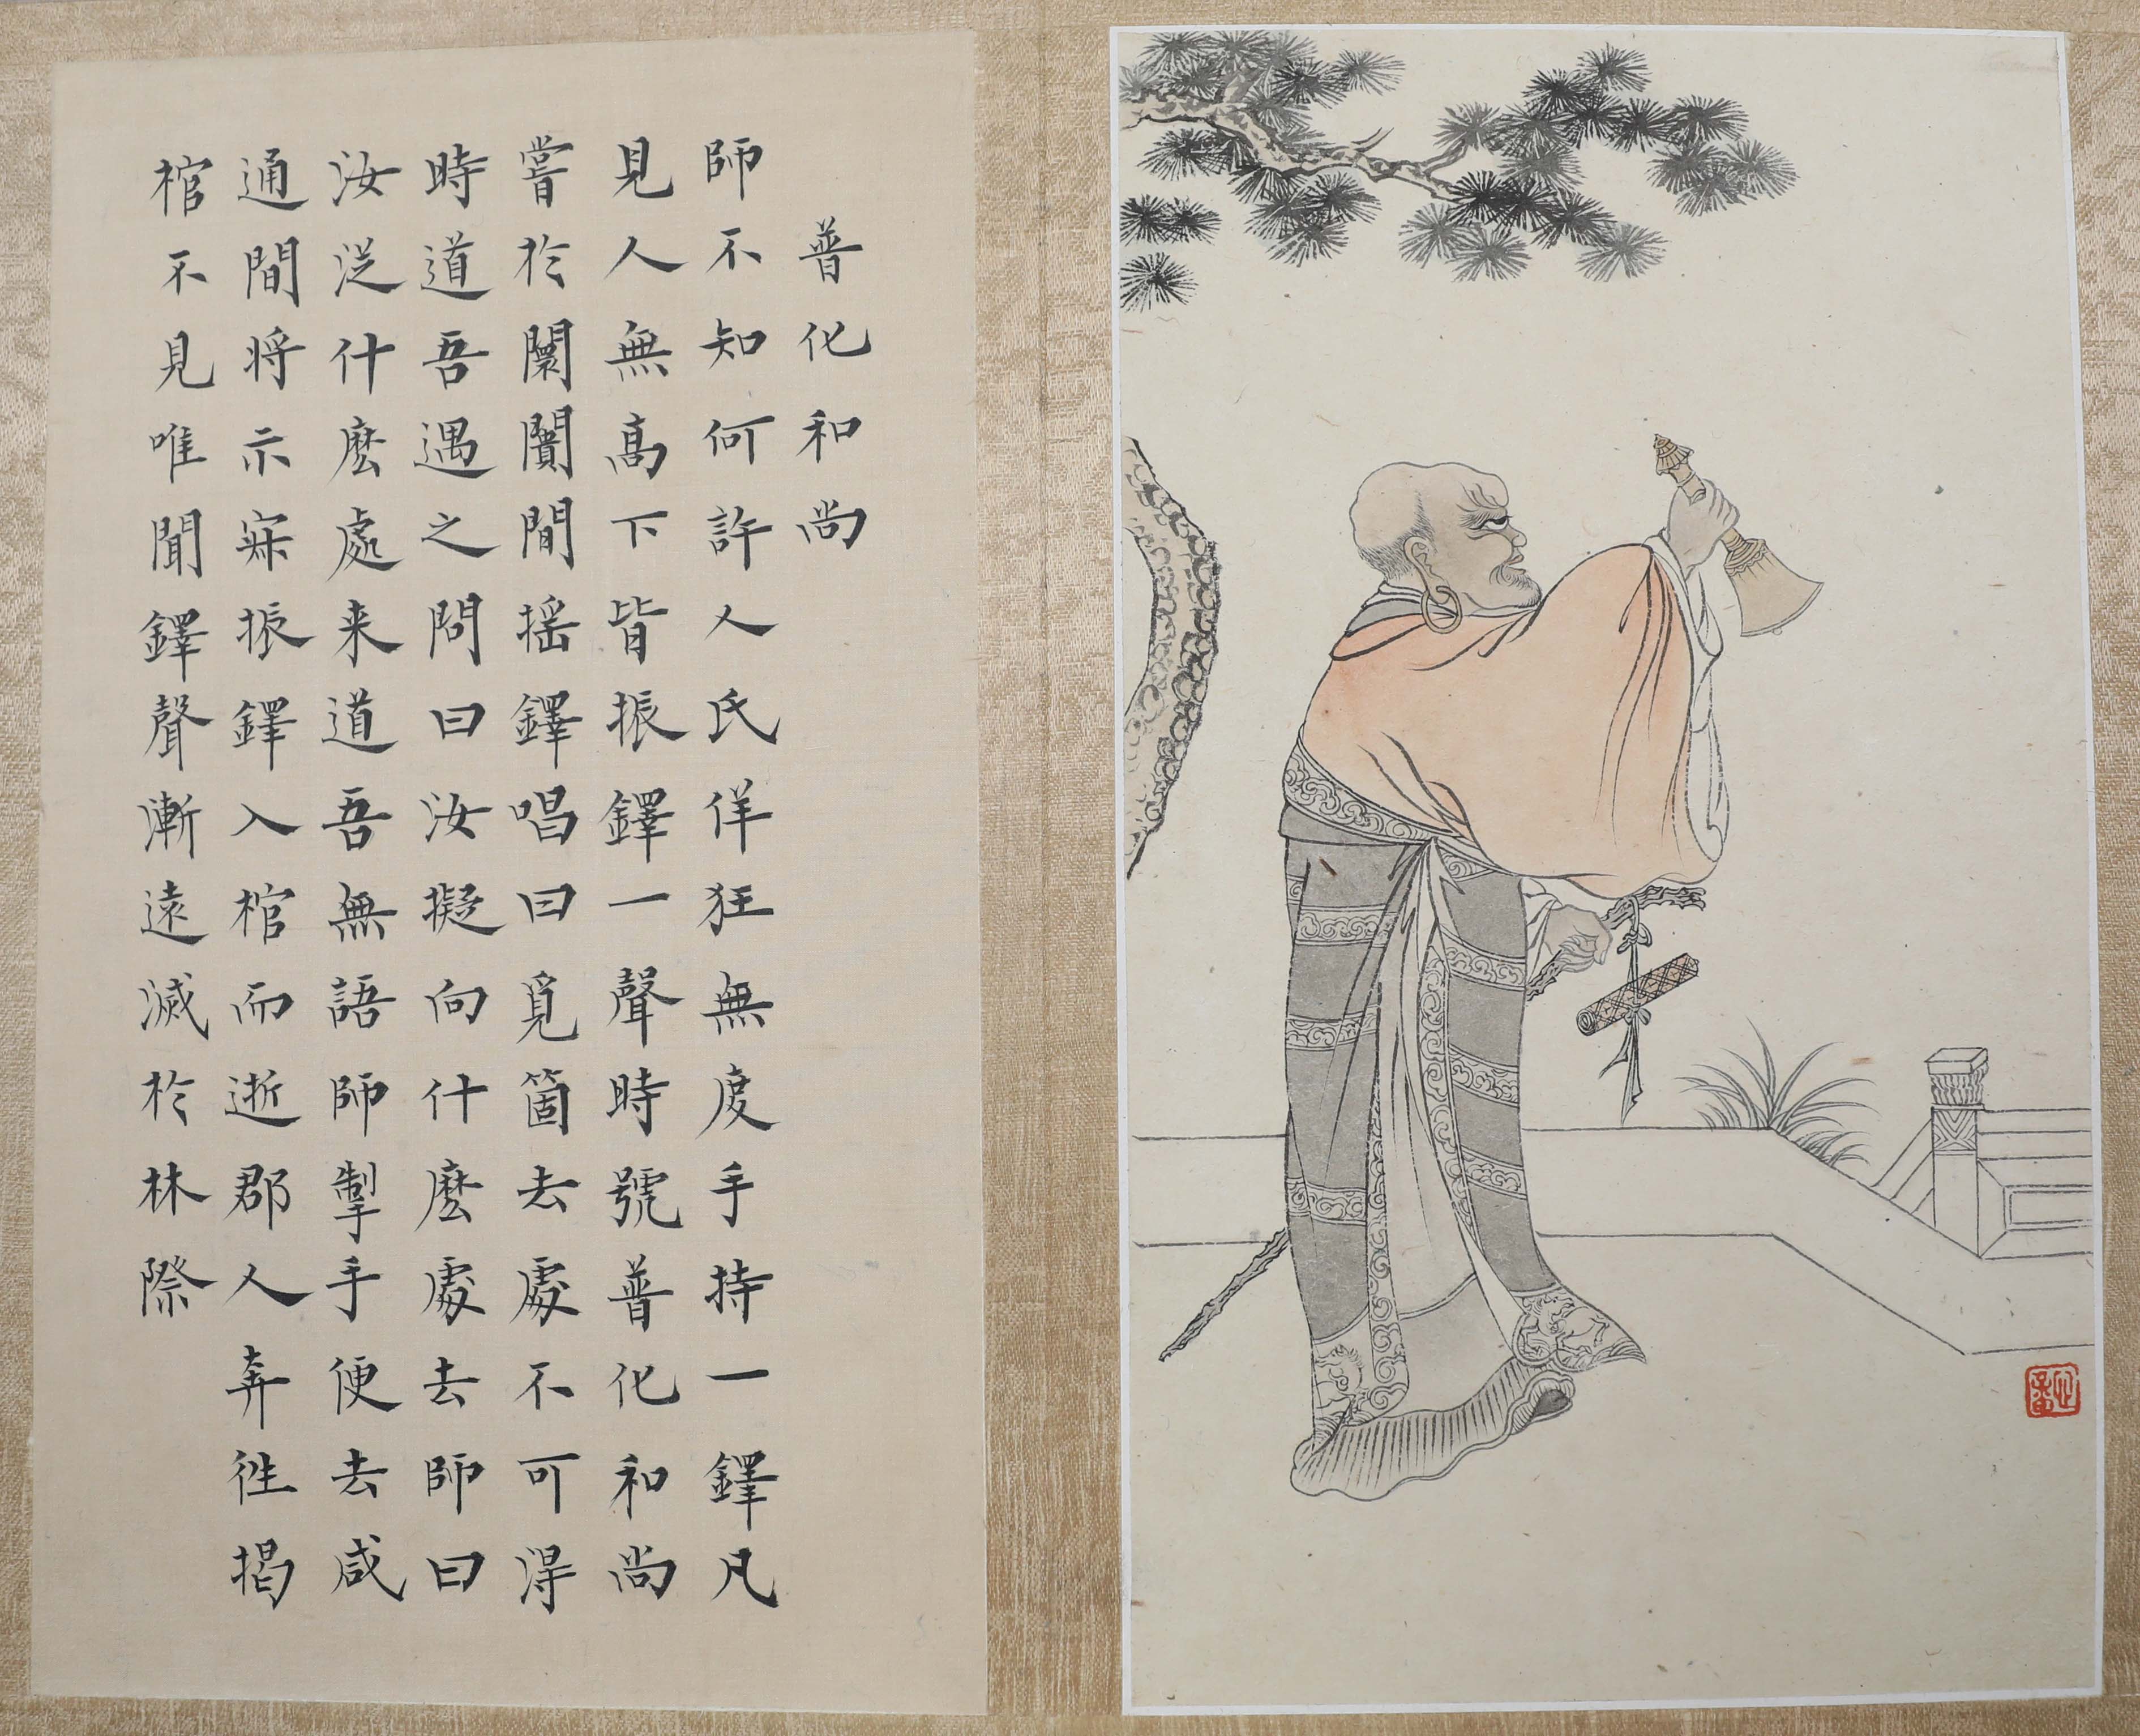 普化和尚
師不知何許人氏佯狂無度手持一鐸凡
見人無高下皆振鐸一聲時號普化和尚
嘗於闤闠間搖鐸唱曰覓箇去處不可得
時道吾遇之問曰汝擬向什麼處去師曰
汝從什麼處来道吾無語師掣手便去咸
通間将示寂振鐸入棺而逝郡人奔徃揭
棺不見唯聞鐸聲漸遠滅於林際